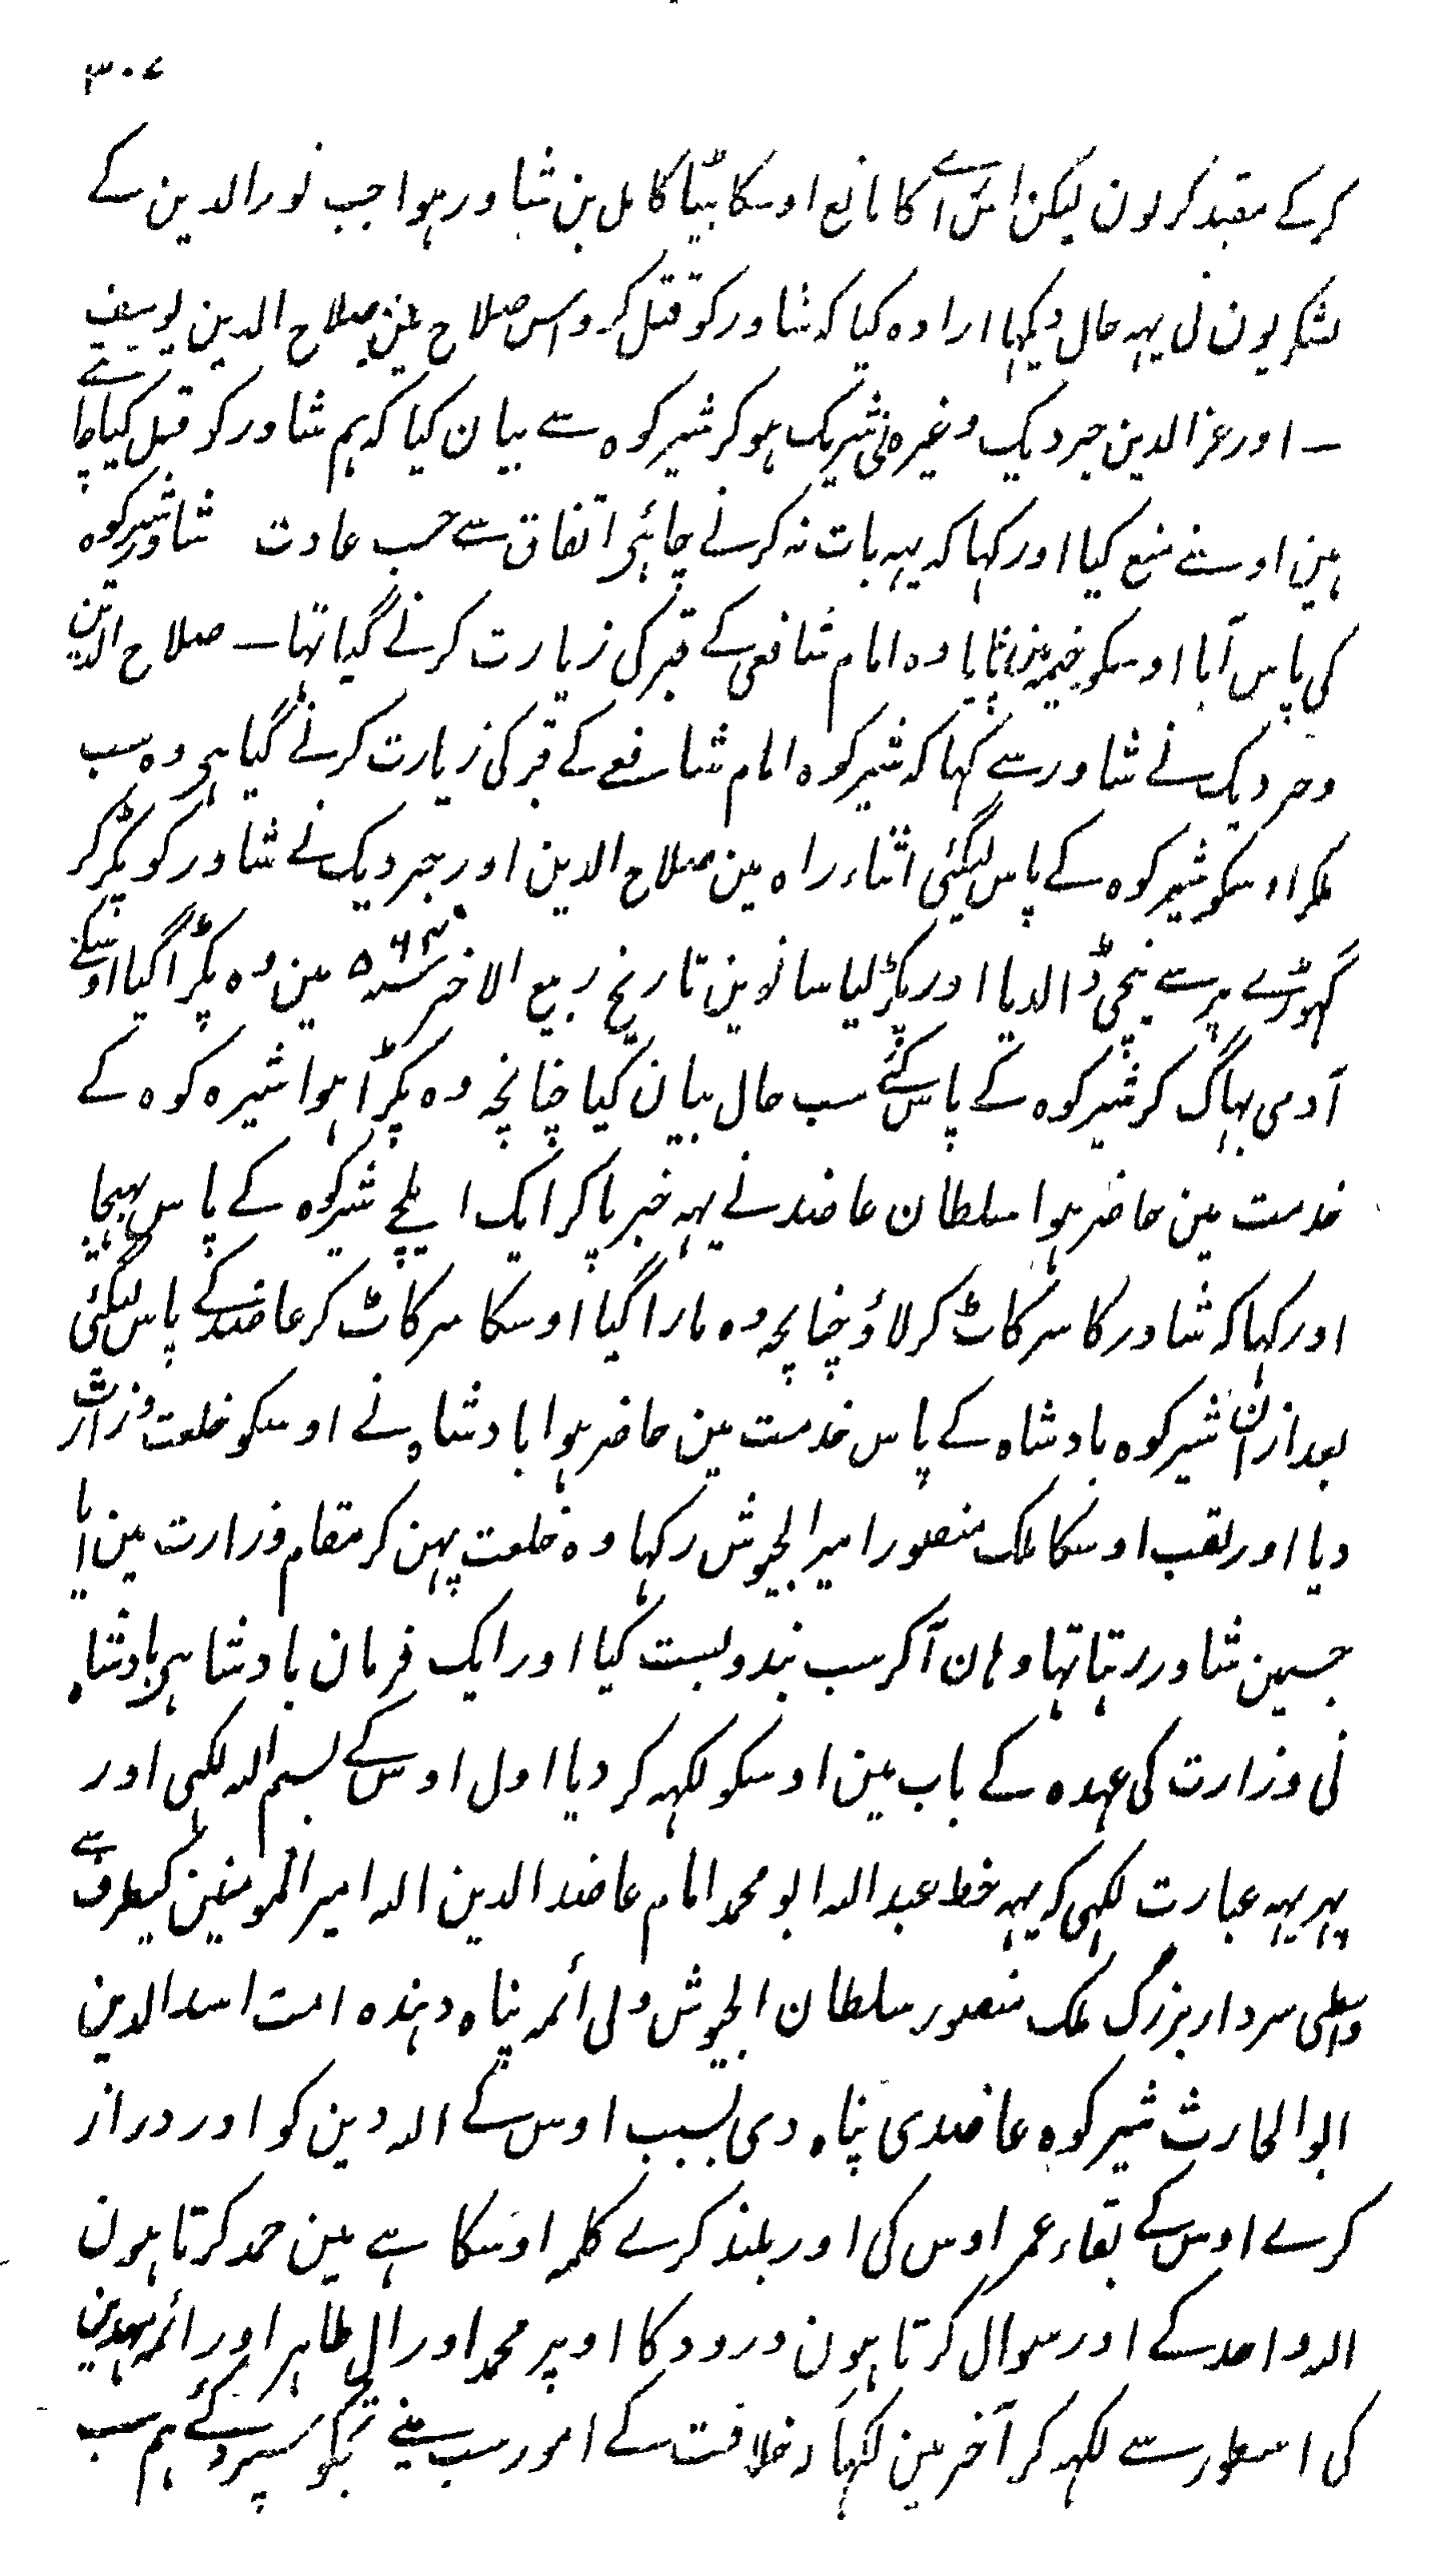 ۳۰۷
کرکے مقید کر لون لیکن اس راے کا مانع اوسکا بیٹا کامل بن شاور ہوا جب نورالدین کے
لشکریون نی یہہ حال دیکہا ارادہ کیا کہ شاور کو قتل کرو اس صلاح مین صلاح الدین یوسف
۔ اور عزالدین جردیک وغیرہ نی شریک ہو کر شیرکوہ سے بیان کیا کہ ہم شاور کو قتل کیا چاہتے
ہین اوسنے منع کیا اور کہا کہ یہہ بات نہ کرنے چاہئی اتفاق سے حسب عادت شاور شیرکوہ
کی پاس آیا اوسکو خیمہ مین نپایا وہ امام شافعی کے قبر کی زیارت کرنے گیا تہا ۔ صلاح الدین
وجردیک نے شاور سے کہا کہ شیرکوہ امام شافعے کے قبر کی زیارت کرنے گیا ہی وہ سب
ملکر اوسکو شیرکوہ کے پاس لیگئی اثناء راہ مین صلاح الدین اور جردیک نے شاور کو پکڑ کر
گہوڑے پر سے نیچی ڈالدیا اور پکڑ لیا ساتوین تاریخ ربیع الاخر سنہ ۵۶۴ مین وہ پکڑا گیا اوسکے
آدمی بہاگ کر شیرکوہ کے پاس گئے سب حال بیان کیا چنانچہ وہ پکڑا ہوا شیرہ کوہ کے
خدمت مین حاضر ہوا سلطان عاضد نے یہہ خبر پا کر ایک ایلچے شیرکوہ کے پاس بہیجا
اور کہا کہ شاور کا سر کاٹ کر لاؤ چنانچہ وہ مارا گیا اوسکا سر کاٹ کر عاضد کے پاس لیگئی
بعد ازان شیرکوہ بادشاہ کے پاس خدمت مین حاضر ہوا بادشاہ نے اوسکو خلعت وزارت
دیا اور لقب اوسکا ملک منصور امیر الجیوش رکہا وہ خلعت پہن کر مقام وزارت مین آیا
جسمین شاور رہتا تہا وہان آکر سب بندوبست کیا اور ایک فرمان بادشاہی بادشاہ
نی وزارت کی عہدہ کے باب مین اوسکو لکہہ کر دیا اول اوس کے بسم اللہ لکہی اور
پہر یہہ عبارت لکہی کہ یہہ خط عبد اللہ ابو محمد امام عاضد الدین اللہ امیر المومنین کیطرف سے
واسطی سردار بزرگ ملک منصور سلطان الجیوش ولی ائمہ پناہ دہندہ امت اسد الدین
ابو الحارث شیرکوہ عاضدی پناہ دی بسبب اوس کے اللہ دین کو اور دراز
کرے اوس کے بقاء عمر اوس کی اور بلند کرے کلمہ اوسکا ہے مین حمد کرتا ہون
اللہ واحد کے اور سوال کرتا ہون درود کا اوپر محمد اور ال طاہر اور ائمہ مہدین
کی اسطور سے لکہہ کر آخر مین لکہا کہ خلافت کے امور سب مینے تجکو سپرد کئے ہم سب